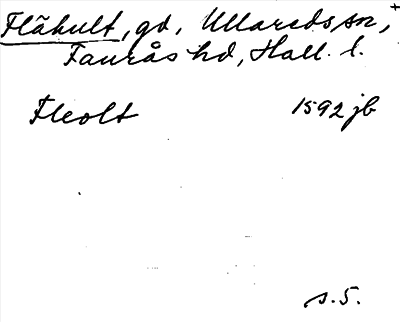 Flähult, gd, Ullareds sn, +
Faurås hd, Hall. l.
Fleolt 1592 jb
s. 5.